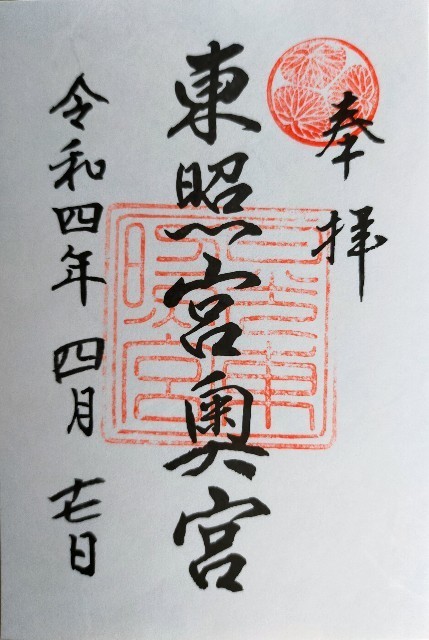 奉拝
東照宮奥宮
令和四年 四月 十七日